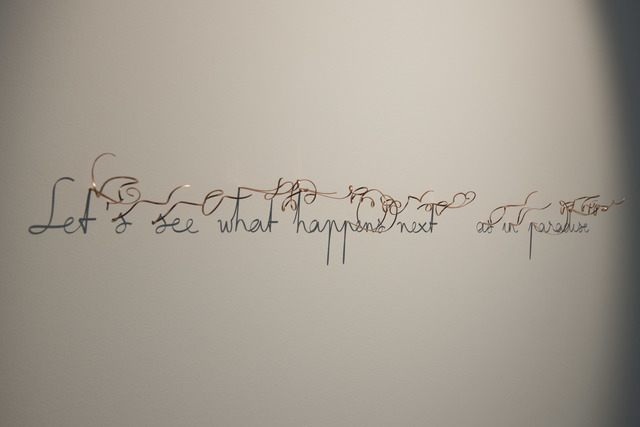 Let's see what happens next as in paradise